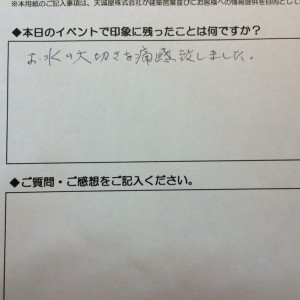 ※本用紙のご記入事項は、天誠屋株式会社が建築営業並びにお客様への情報提供を目的として
◆本日のイベントで印象に残ったことは何ですか?
お水の大切さを痛感致しました。
◆ご質問・ご感想をご記入ください。